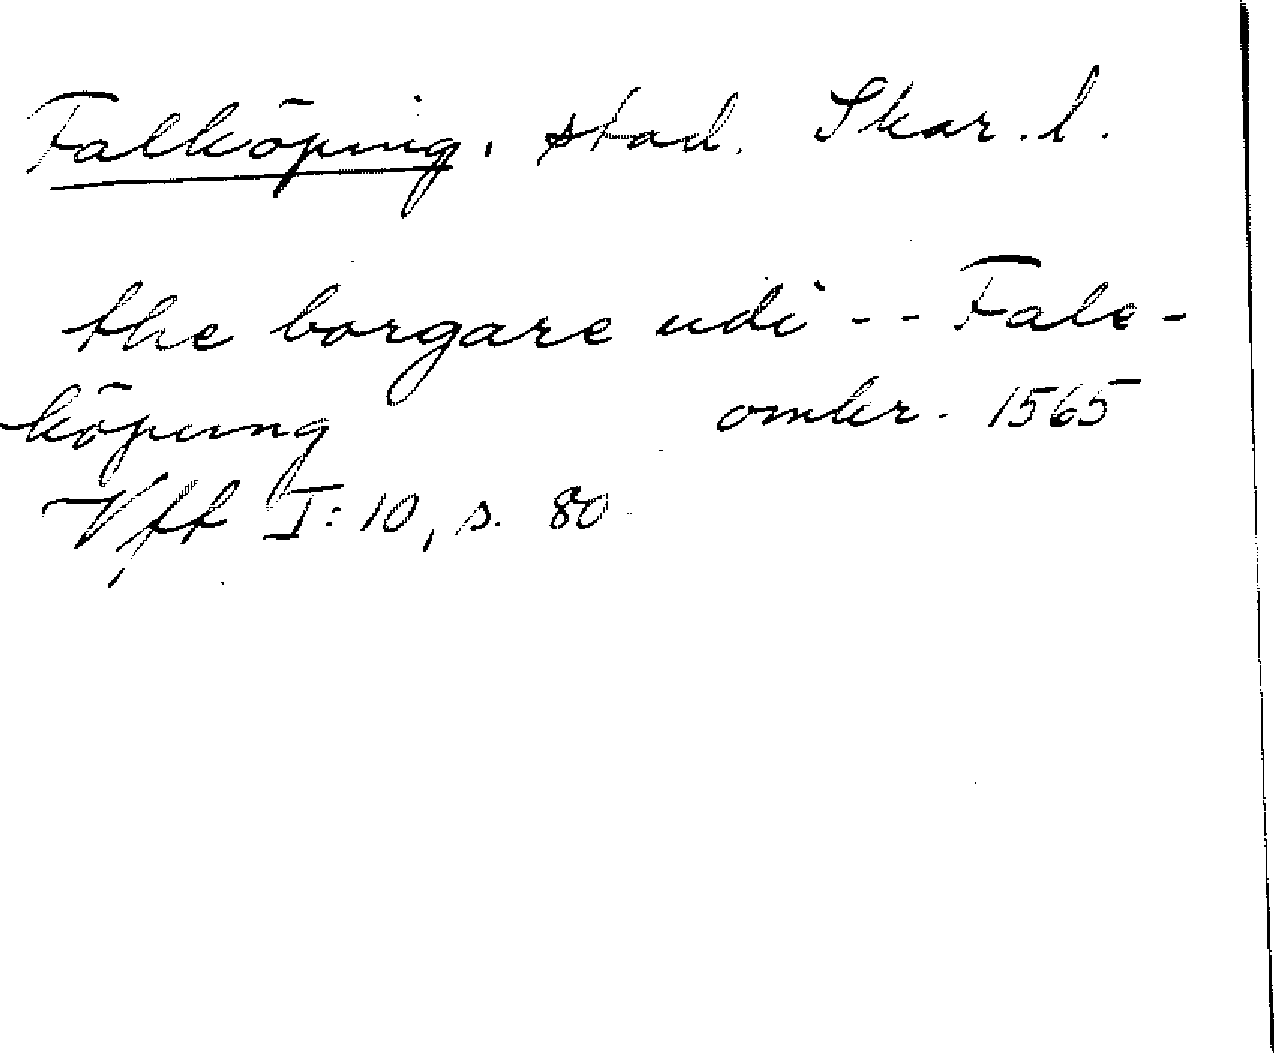 Falköping. stad. Skar. l.
the borgare udi -- Fale-
köpung omkr. 1565
Vff I:10, s. 80